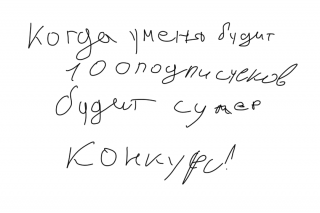 Когда уменя будит
100подписчеков
будит супер
конкурс!